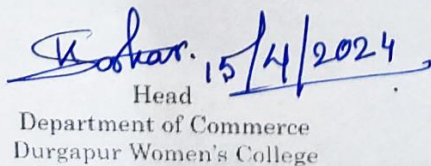 15/4/2024
Head
Department of Commerce
Durgapur Women's College